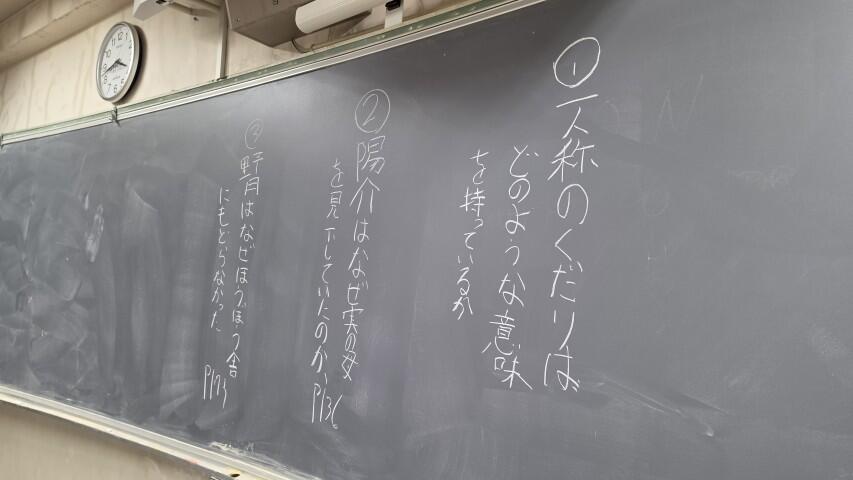 ①一人称のくだりは
どのような意味
を持っているか
②陽介はなぜ実の母
を見下していたのか、P136。
③野月はなぜぼうぼう舎
にもどらなかった P173